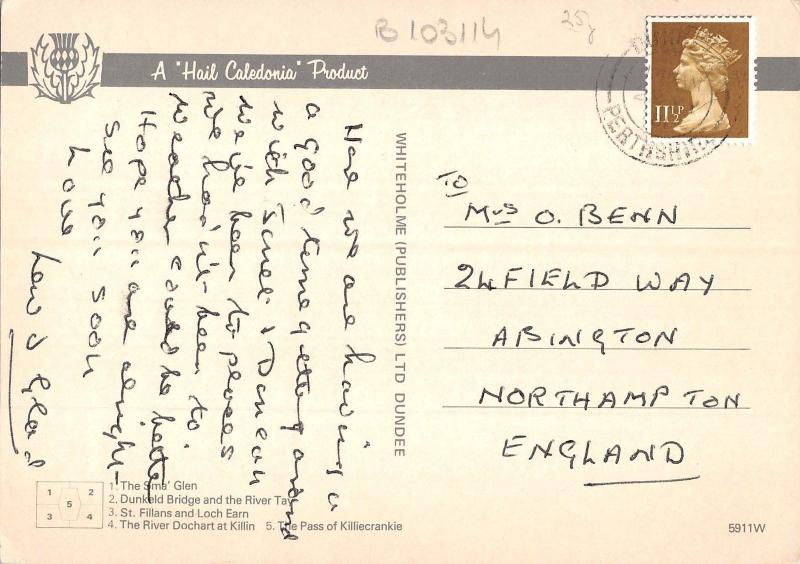 B 103114
25p
A "Hail Caledonia" Product
11½P
PERTHSHIRE
Here we are having a
a good time getting around
with Janet & Duncan
we've been to places
we had'nt been to
weather could be better
Hope you are alright
see you soon
love
Lew & Glad
WHITEHOLME (PUBLISHERS) LTD DUNDEE
To
Mrs O. BENN
24 FIELD WAY
ABINGTON
NORTHAMPTON
ENGLAND
1 2
5
3 4
1. The Sma' Glen
2. Dunkeld Bridge and the River Tay
3. St. Fillans and Loch Earn
4. The River Dochart at Killin 5. The Pass of Killiecrankie
5911W